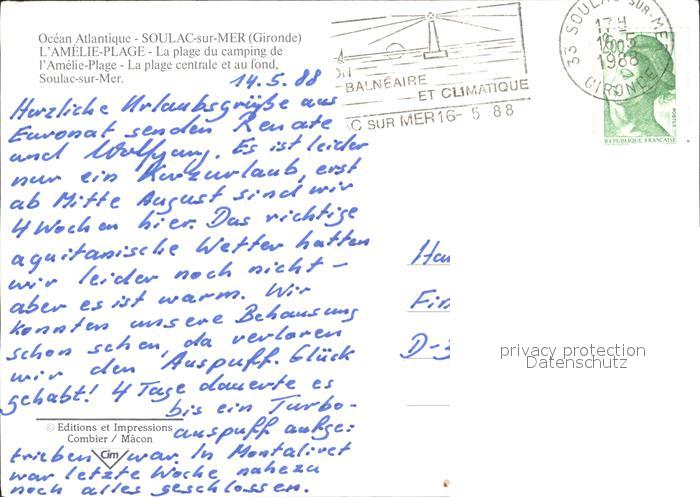 Océan Atlantique - SOULAC-sur-MER (Gironde)
L'AMÉLIE-PLAGE - La plage du camping de
l'Amélie-Plage - La plage centrale et au fond,
Soulac-sur-Mer.
14.5.88
Herzliche Urlaubsgrüße aus
Euronat senden Renate
und Wolfgang. Es ist leider
nur ein Kurzurlaub, erst
ab Mitte August sind wir
4 Wochen hier. Das richtige
aquitanische Wetter hatten
wir leider noch nicht -
aber es ist warm. Wir
konnten unsere Behausung
schon sehen, da verloren
wir den Auspuff. Glück
gehabt! 4 Tage dauerte es
bis ein Turbo-
auspuff aufge:
trieben war. In Montalivet
war letzte Woche nahezu
noch alles geschlossen.
© Editions et Impressions
Combier / Mâcon
Cim
BALNÉAIRE
ET CLIMATIQUE
C SUR MER 16- 5 88
33 SOULAC-SUR-MER
17 H
16-5
1988
GIRONDE
REPUBLIQUE FRANÇAISE
POSTES
D-3
privacy protection
Datenschutz